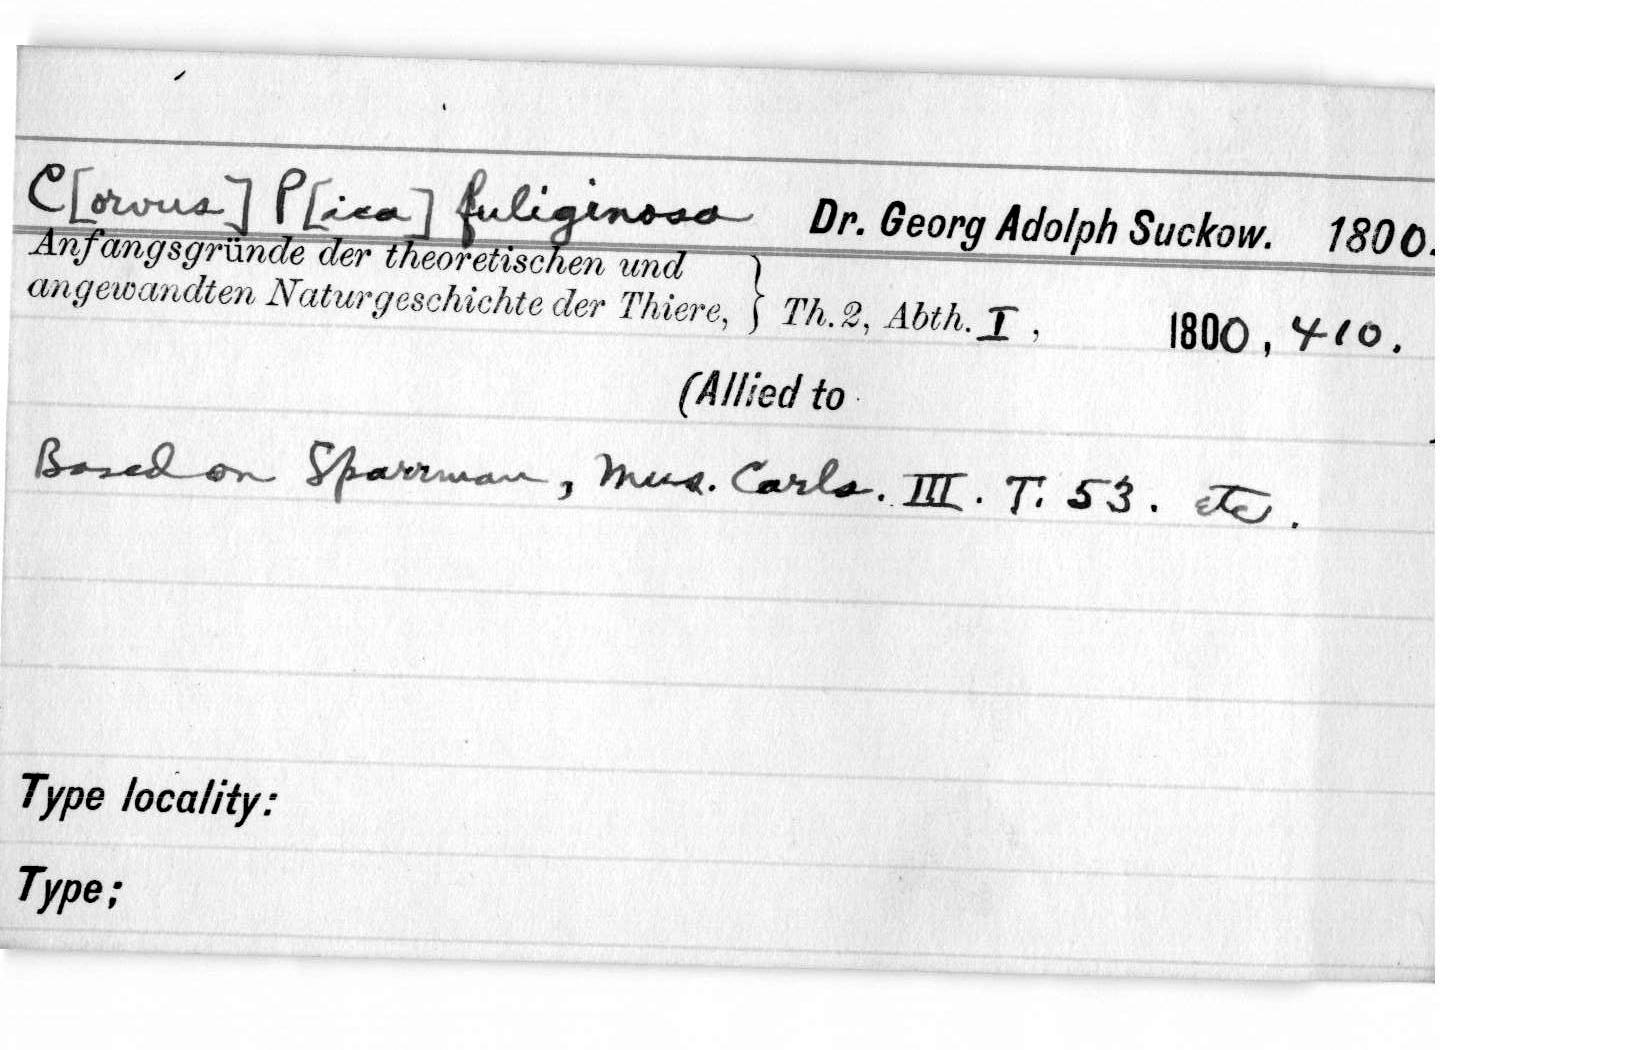 C[orvus] P[ica] fuliginosa Dr. Georg Adolph Suckow. 1800.
Anfangsgründe der theoretischen und
angewandten Naturgeschichte der Thiere, } Th. 2, Abth. I, 1800, 410.
(Allied to
Based on Sparrman, Mus. Carls. III. T. 53. etc.
Type locality:
Type;